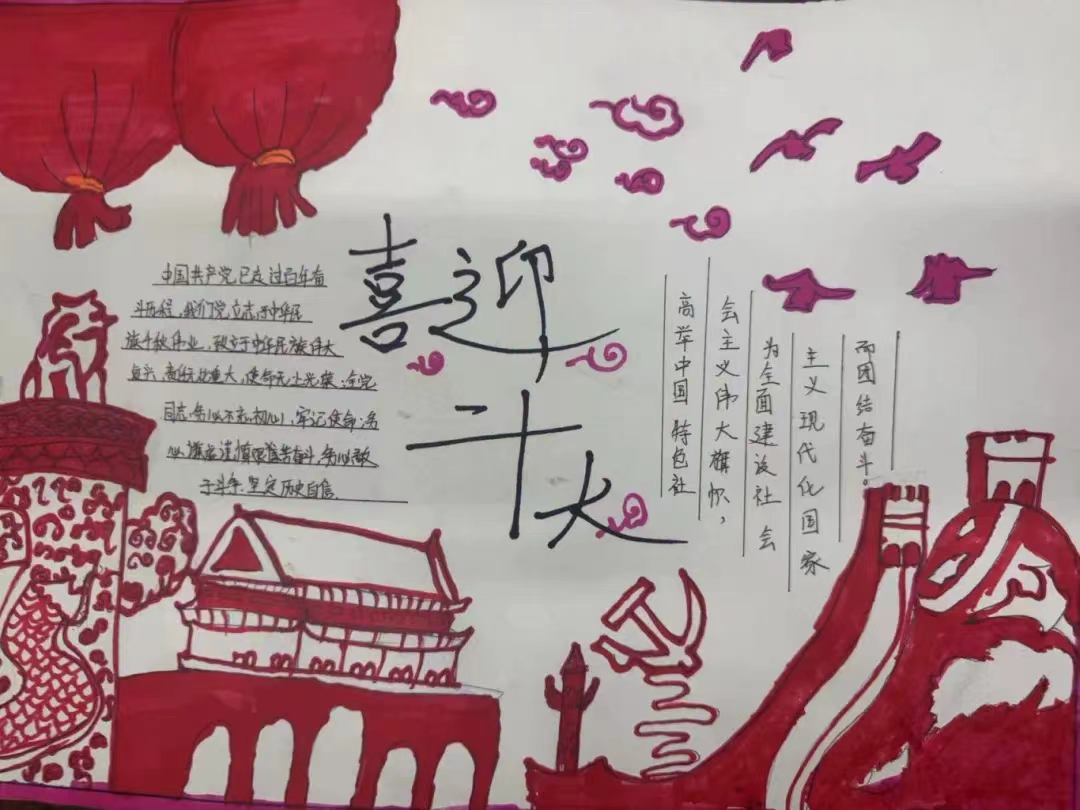 喜迎
二十大
中国共产党已走过百年奋
斗历程。我们党立志于中华民
族千秋伟业，致力于中华民族伟大
复兴，责任无比重大，使命无上光荣。全党
同志务必不忘初心，牢记使命，务
必谦虚谨慎艰苦奋斗，务必敢
于斗争，坚定历史自信，
高举中国特色社
会主义伟大旗帜，
为全面建设社会
主义现代化国家
而团结奋斗。